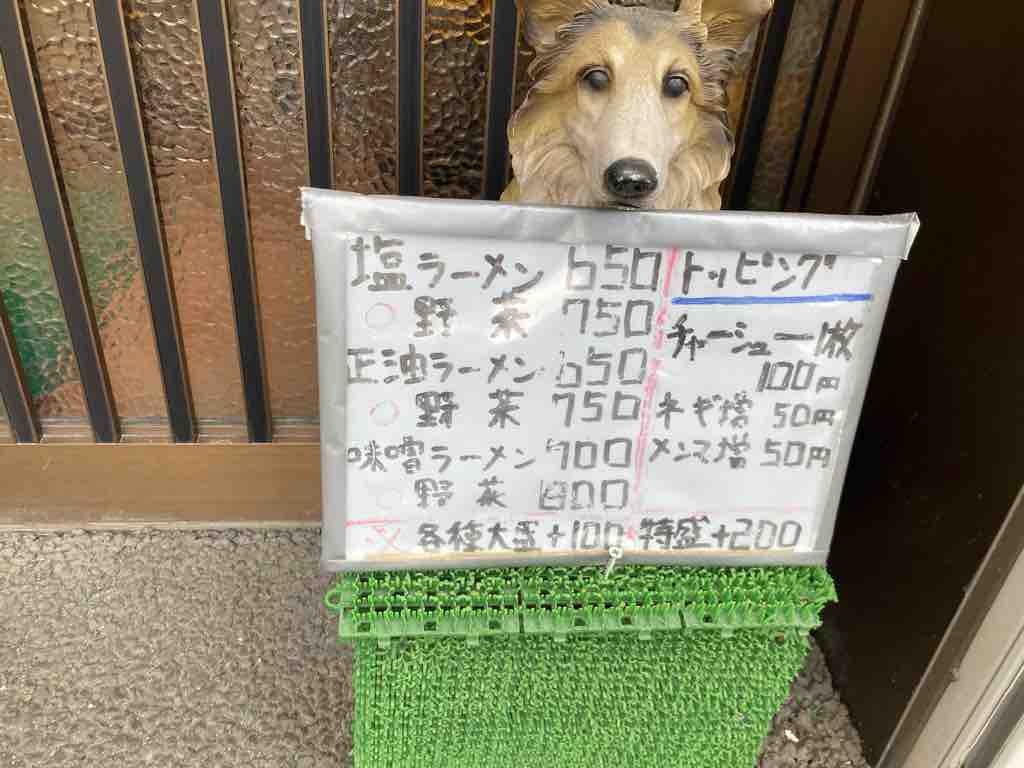 塩ラーメン 650
○ 野菜 750
正油ラーメン 650
○ 野菜 750
味噌ラーメン 700
○ 野菜 800
トッピング
チャーシュー一枚
100円
ネギ増 50円
メンマ増 50円
※ 各種大盛+100 特盛+200